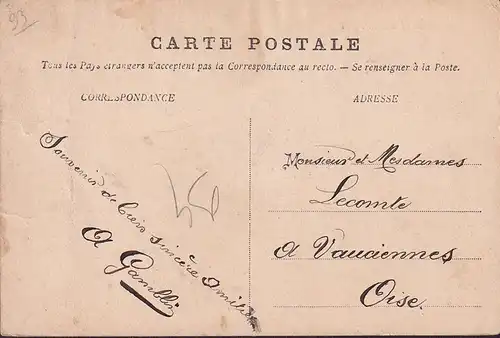 93
CARTE POSTALE
Tous les Pays étrangers n'acceptent pas la Correspondance au recto. — Se renseigner à la Poste.
CORRESPONDANCE
Souvenir de bien sincère amitié
A
ADRESSE
Monsieur et Mesdames
Lecomte
A Vauciennes
Oise.